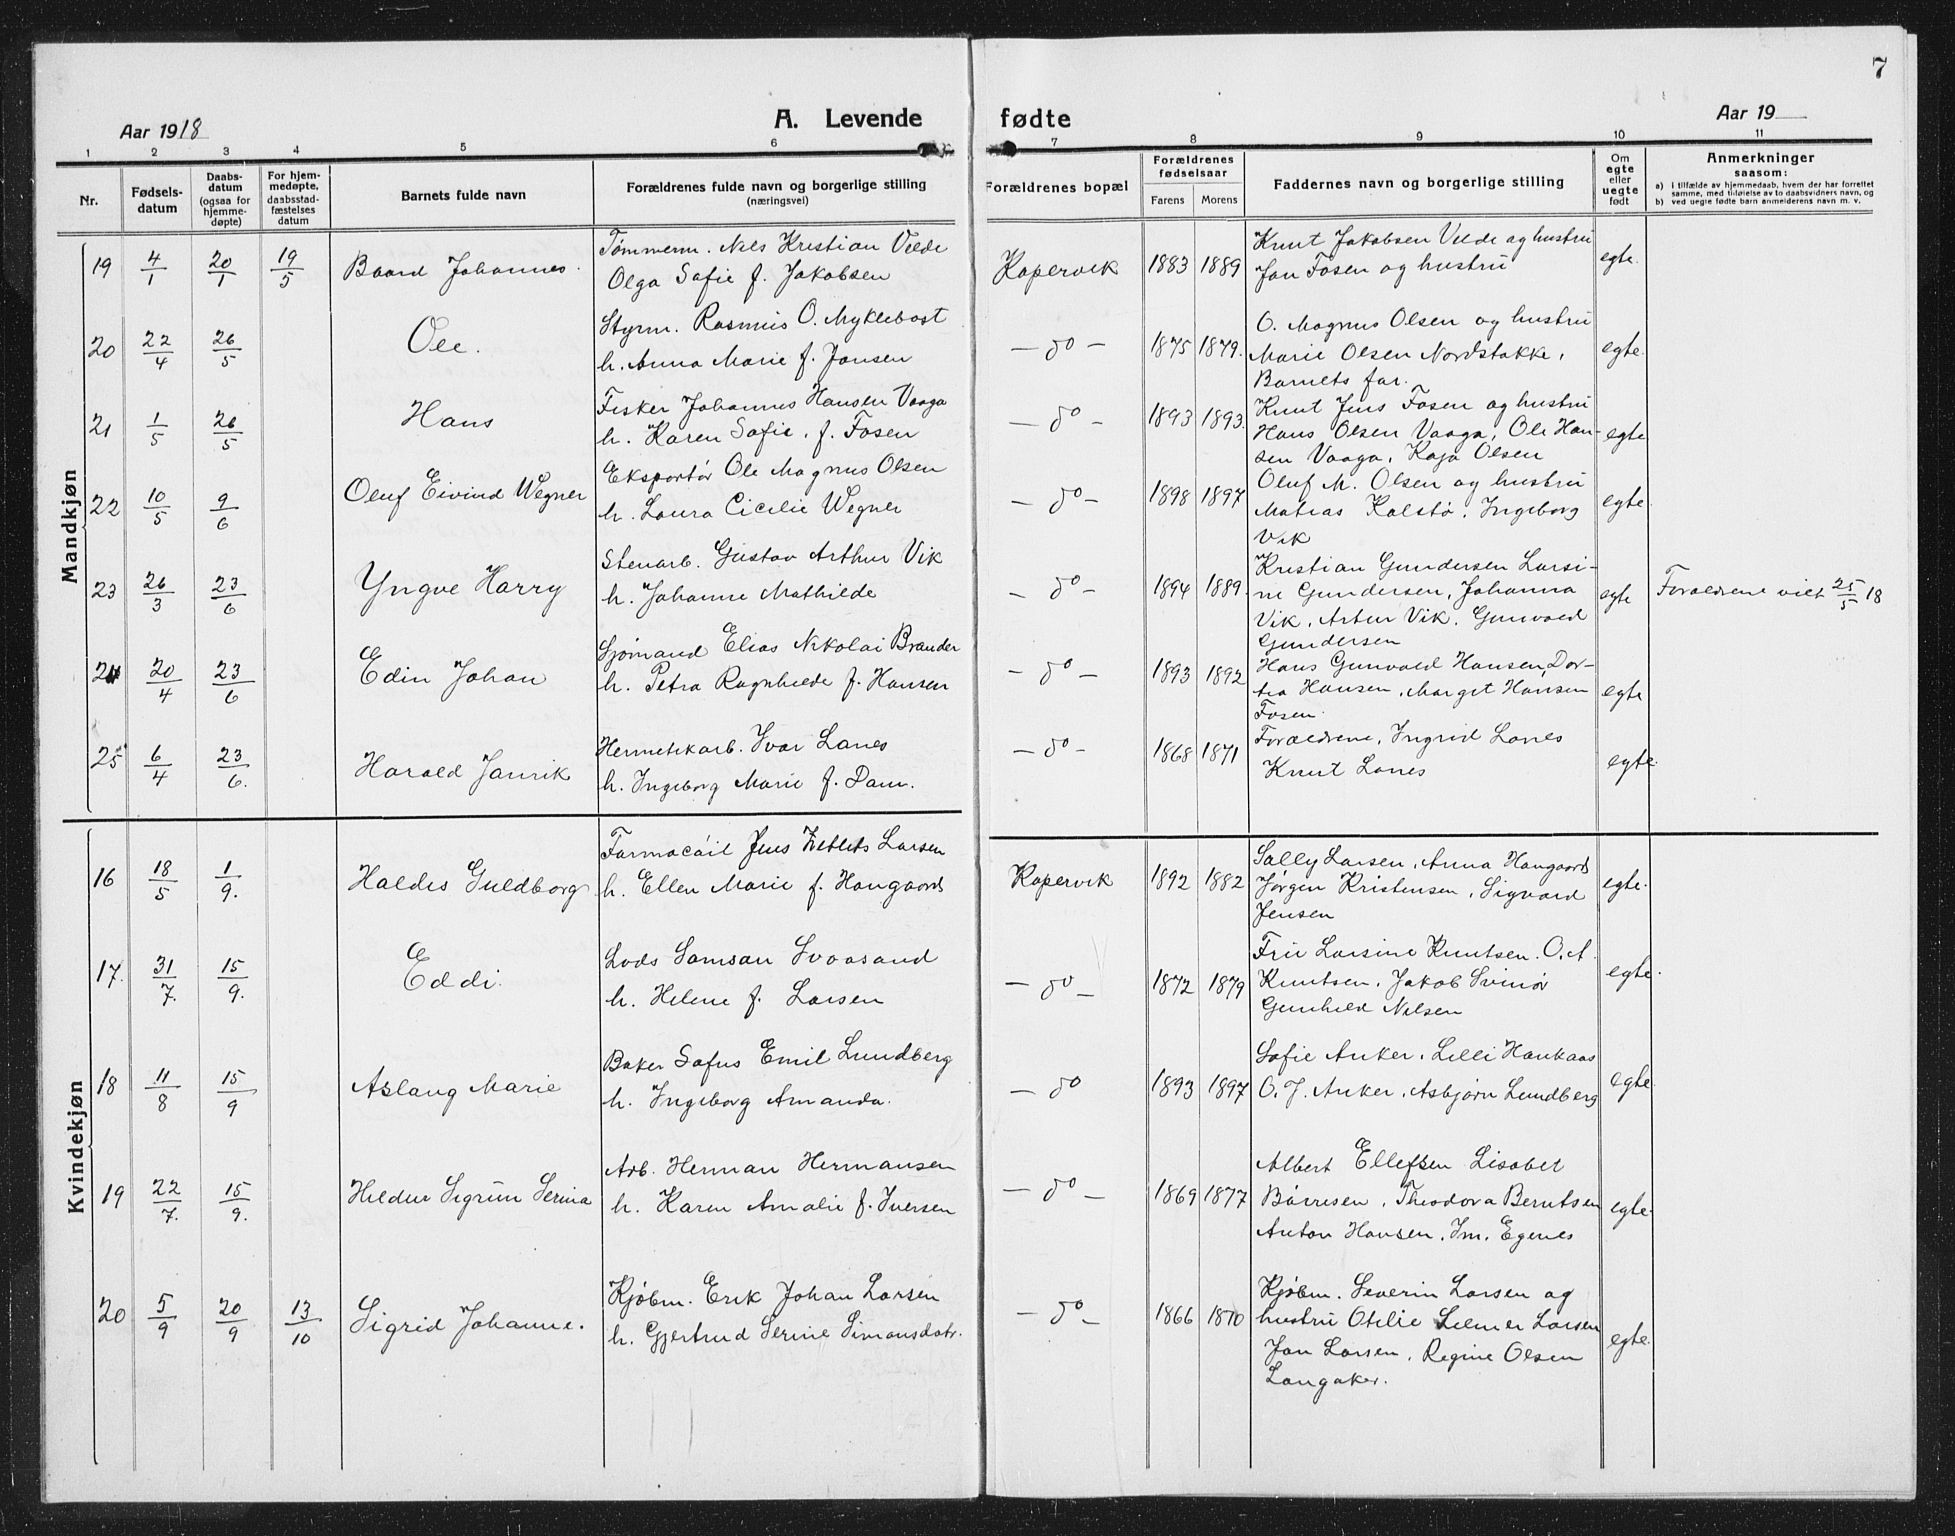 7
Aar 1918
A. Levende
fødte
Aar 19
1 2 3 4 5 6 7 8 9 10 11
Nr.
Fødsels-
datum
Daabs-
datum
(ogsaa for
hjemme-
døpte)
For hjem-
medøpte,
daabsstad-
fæstelses
datum
Barnets fulde navn
Forældrenes fulde navn og borgerlige stilling
(næringsvei)
Forældrenes bopæl
Forældrenes
fødselsaar
Farens Morens
Faddernes navn og borgerlige stilling
Om
egte
eller
uegte
født
Anmerkninger
saasom:
a) i tilfælde av hjemmedaab, hvem der har forrettet
samme, med tilføielse av to daabsvidners navn, og
b) ved uegte fødte barn anmelderens navn m. v.
Mandkjøn
19 4/1 20/1 19/5 Baard Johannes.
Tømmerm. Nils Kristian Velde
Olga Sofie f. Jakobsen
Kopervik 1883 1889
Knut Jakobsen Velde og hustru
Jan Fosen og hustru
egte.
20 22/4 26/5 Ole.
Styrm. Rasmus O. Myklebost
h. Anna Marie f. Jansen
— do — 1875 1879.
O. Magnus Olsen og hustru
Marie Olsen Nordstokke,
Barnets far.
egte.
21 1/5 26/5 Hans
Fisker Johannes Hansen Vaaga
h. Karen Sofie, f. Fosen
— do — 1893 1893.
Knut Jens Fosen og hustru
Hans Olsen Vaaga, Ole Han-
sen Vaaga, Kaja Olsen
egte
22 10/5 9/6 Oluf Eivind Wegner
Eksportør Ole Magnus Olsen
h. Laura Cicilie Wegner
— do — 1898 1897
Oluf M. Olsen og hustru
Matias Kalstø, Ingeborg
Vik
egte.
23 26/3 23/6 Yngve Harry
Stenarb. Gustav Arthur Vik
h. Johanne Mathilde
— do — 1894 1889.
Kristian Gundersen Larsi-
ne Gundersen, Johanna
Vik, Artur Vik, Gunvald
Gundersen
egte Forældrene viet 25/5 18
24 20/4 23/6 Edin Johan
Sjømand Elias Nikolai Brander
h. Petra Ragnhilde f. Hansen
— do — 1893 1892
Hans Gunvald Hansen, Dor-
tea Hansen, Margit Hansen
Fosen.
egte
25 6/4 23/6. Harald Janrik
Hermetikarb. Ivar Lanes
h. Ingeborg Marie f. Dam.
— do — 1868 1871
Forældrene, Ingrid Lanes
Knut Lanes
egte.
Kvindekjøn
16 18/5 1/9. Haldis Guldborg
Farmacøit Jens Zetlits Larsen
h. Ellen Marie f. Haugaard
Kopervik 1892 1882
Sally Larsen, Anna Haugaard
Jørgen Kristensen, Sigvard
Jensen
egte.
17. 31/7. 15/9. Eddi.
Lods Samson Svaasand
h. Helene f. Larsen
— do — 1872 1879
Fru Larsine Knutsen. O. A.
Knutsen, Jakob Svinør
Gunhild Nilsen
egte.
18 11/8 15/9 Aslaug Marie
Baker Sofus Emil Lundberg
h. Ingeborg Amanda.
— do 1893 1897
Sofie Anker, Lilli Haukaas
O. J. Anker, Asbjørn Lundberg
egte.
19 22/7. 15/9. Hildur Sigrun Serina
Arb. Herman Hermansen
h. Karen Amalie f. Iversen
— do — 1869 1877
Albert Ellefsen Lisabet
Børresen, Theodora Berntsen
Anton Hansen, Im. Egenes
egte.
20 5/9 20/9 13/10 Sigrid Johanne.
Kjøbm. Erik Johan Larsen
h. Gjertrud Serine Simonsdatr.
— do — 1866 1870
Kjøbm. Severin Larsen og
hustru Otilie Larsen
Jan Larsen, Regine Olsen
Langaker.
egte.